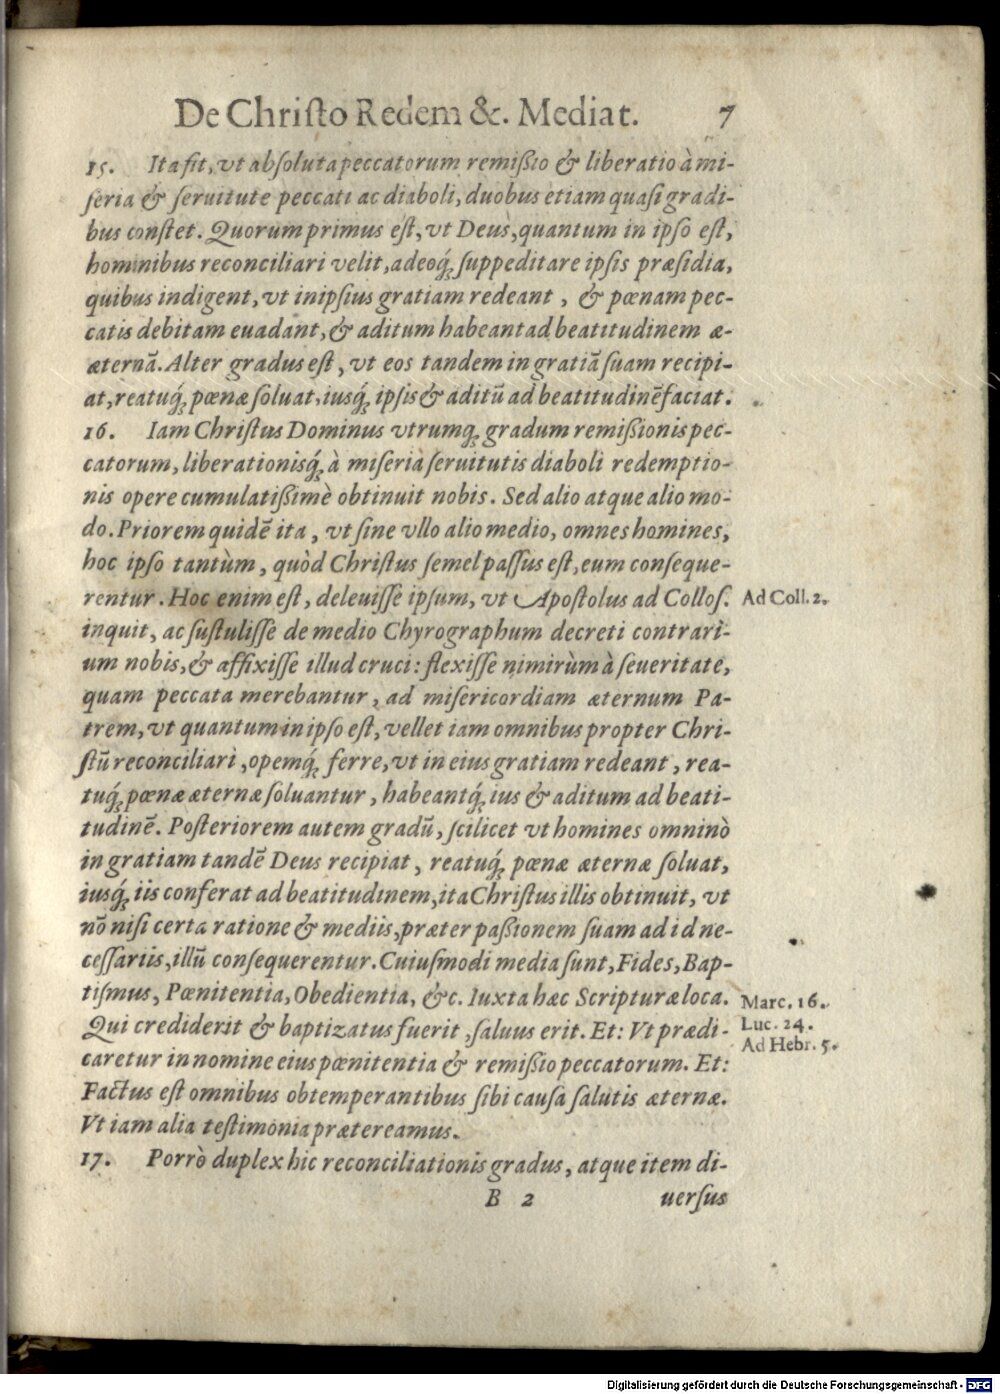 De Chriſto Redem &. Mediat. 7
15. Ita fit, vt abſoluta peccatorum remiſsio & liberatio à mi-
ſeria & ſeruitute peccati ac diaboli, duobus etiam quaſi gradi-
bus conſtet. Quorum primus eſt, vt Deus, quantum in ipſo eſt,
hominibus reconciliari velit, adeoq́; ſuppeditare ipſis præſidia,
quibus indigent, vt in ipſius gratiam redeant, & pœnam pec-
catis debitam euadant, & aditum habeant ad beatitudinem æ-
æternā. Alter gradus eſt, vt eos tandem in gratiā ſuam recipi-
at, reatuq́; pœnæ ſoluat, iusq́; ipſis & aditū ad beatitudinē faciat.
16. Iam Chriſtus Dominus vtrumq; gradum remiſsionis pec-
catorum, liberationisq́; à miſeria ſeruitutis diaboli redemptio-
nis opere cumulatiſsimè obtinuit nobis. Sed alio atque alio mo-
do. Priorem quidē ita, vt ſine vllo alio medio, omnes homines,
hoc ipſo tantùm, quòd Chriſtus ſemel paſſus eſt, eum conſeque-
rentur. Hoc enim eſt, deleuiſſe ipſum, vt Apoſtolus ad Colloſ.
Ad Coll. 2.
inquit, ac ſuſtuliſſe de medio Chyrographum decreti contrari-
um nobis, & affixiſſe illud cruci: flexiſſe nimirùm à ſeueritate,
quam peccata merebantur, ad miſericordiam æternum Pa-
trem, vt quantum in ipſo eſt, vellet iam omnibus propter Chri-
ſtū reconciliari, opemq́; ferre, vt in eius gratiam redeant, rea-
tuq́; pœnæ æternæ ſoluantur, habeantq́; ius & aditum ad beati-
tudinē. Poſteriorem autem gradū, ſcilicet vt homines omninò
in gratiam tandē Deus recipiat, reatuq́; pœnæ æternæ ſoluat,
iusq́; iis conferat ad beatitudinem, ita Chriſtus illis obtinuit, vt
nō niſi certa ratione & mediis, præter paſsionem ſuam ad id ne-
ceſſariis, illū conſequerentur. Cuiuſmodi media ſunt, Fides, Bap-
tiſmus, Pœnitentia, Obedientia, &c. Iuxta hæc Scripturæ loca.
Marc. 16.
Qui crediderit & baptizatus fuerit, ſaluus erit. Et: Vt prædi-
Luc. 24.
caretur in nomine eius pœnitentia & remiſsio peccatorum. Et:
Ad Hebr. 5.
Factus eſt omnibus obtemperantibus ſibi cauſa ſalutis æternæ.
Vt iam alia teſtimonia prætereamus.
17. Porrò duplex hic reconciliationis gradus, atque item di-
B 2 uerſus
Digitalisierung gefördert durch die Deutsche Forschungsgemeinschaft - DFG